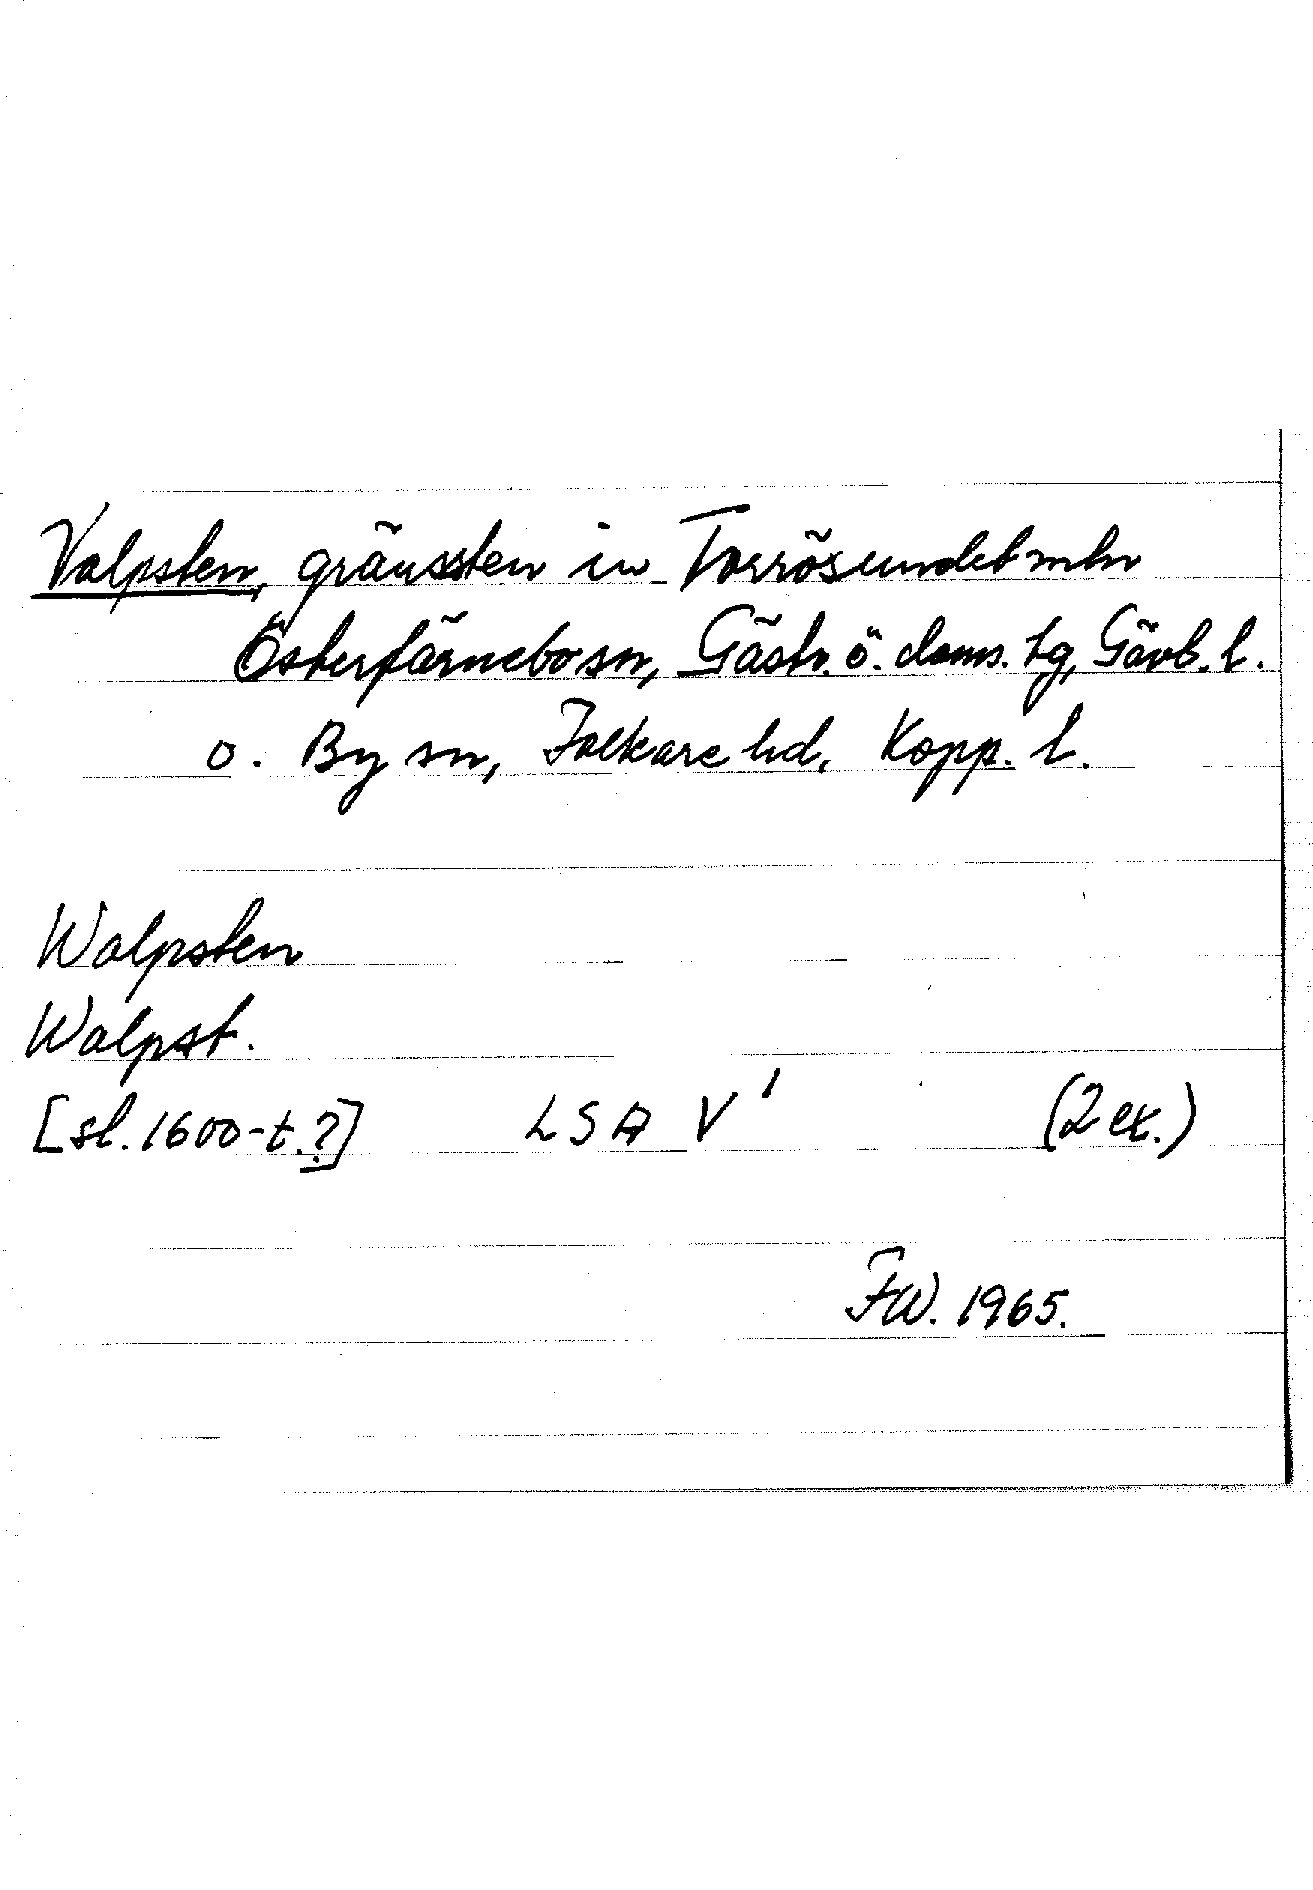 Valpsten, gränssten i Torrösundet mln
Österfärnebo sn, Gästr. ö. doms. tg, Gävb. l.
o. By sn, Folkare hd, Kopp. l.
Walpsten
Walpst.
[sl. 1600-t.?] LSA V¹ (2 ex.)
FW. 1965.